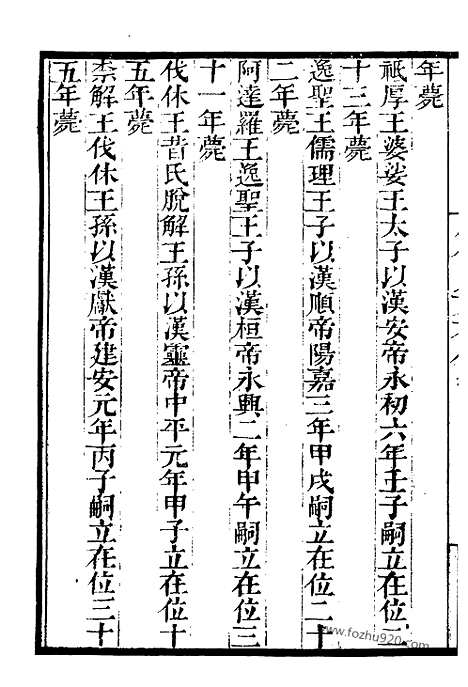 年薨
祗厚王婆娑王太子以漢安帝永初六年壬子嗣立在位二
十三年薨
逸聖王儒理王子以漢順帝陽嘉三年甲戌嗣立在位二十
二年薨
阿達羅王逸聖王子以漢桓帝永興二年甲午嗣立在位三
十一年薨
伐休王昔氏脫解王孫以漢靈帝中平元年甲子立在位十
五年薨
柰解王伐休王孫以漢獻帝建安元年丙子嗣立在位三十
五年薨
www.fozhu920.com